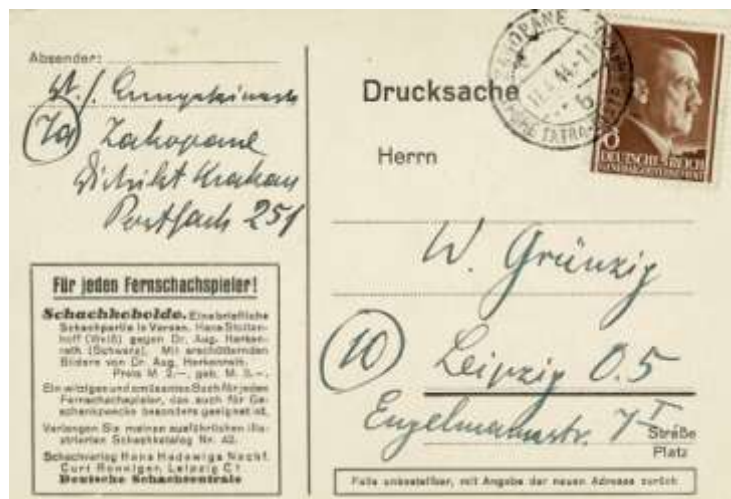 Absender:
(7a) Zakopane
Distrikt Krakau
Postfach 251
Für jeden Fernschachspieler!
Schachkobolde. Eine briefliche
Schachpartie in Versen. Hans Stolten-
hoff (Weiß) gegen Dr. Aug. Herken-
rath (Schwarz). Mit erschütternden
Bildern von Dr. Aug. Herkenrath.
Preis M. 2.—, geb. M. 3.—.
Ein witziges und amüsantes Buch für jeden
Fernschachspieler, das auch für Ge-
schenkzwecke besonders geeignet ist.
Verlangen Sie meinen ausführlichen illu-
strierten Schachkatalog Nr. 42.
Schachverlag Hans Hedewigs Nachf.
Curt Ronniger, Leipzig C1
Deutsche Schachzentrale
Drucksache
ZAKOPANE
b
6
DEUTSCHES REICH
GENERALGOUVERNEMENT
Herrn
W. Grünzig
(10) Leipzig O.5
Engelmannstr. 7 I
Straße
Platz
Falls unbestellbar, mit Angabe der neuen Adresse zurück